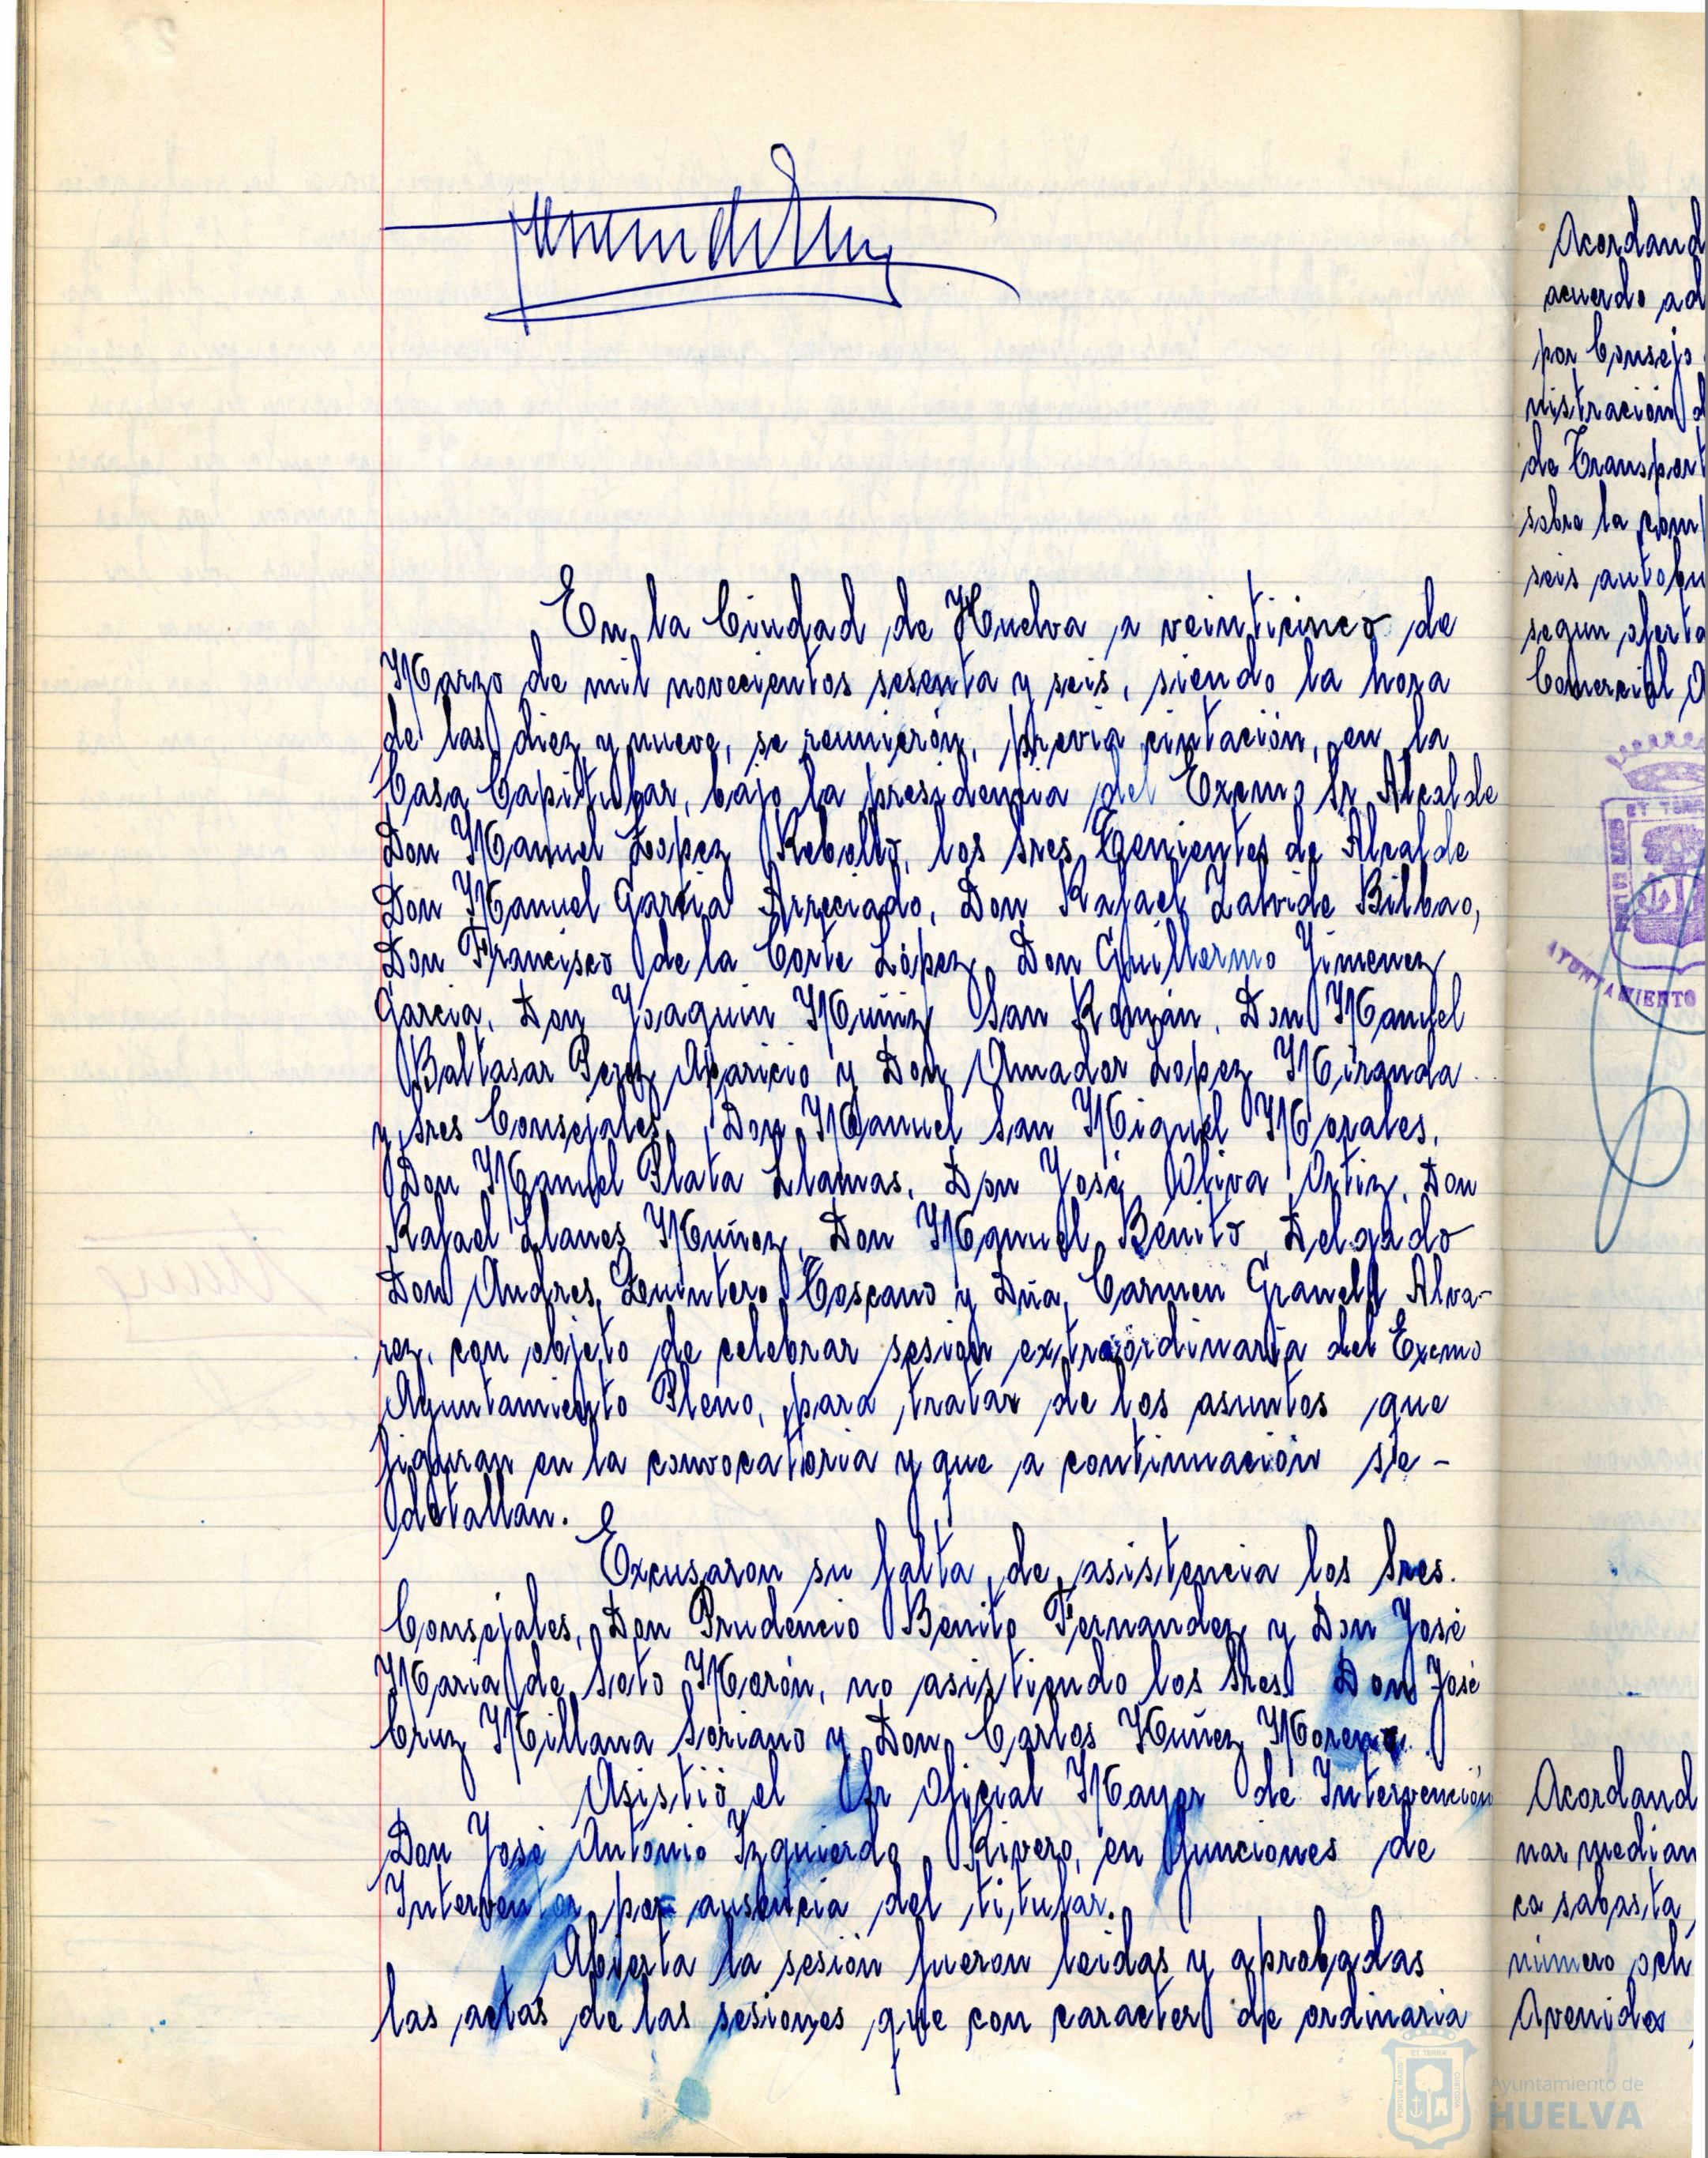 En la Ciudad de Huelva a veinticinco de
Marzo de mil novecientos sesenta y seis, siendo la hora
de las diez y nueve, se reunierón, previa cintación, en la
Casa Capitular, bajo la presidencia del Excmo Sr Alcalde
Don Manuel Lopez Rebollo, los Sres Tenientes de Alcalde
Don Manuel Garcia Arreciado, Don Rafael Zalvide Bilbao,
Don Francisco de la Corte López, Don Guillermo Jimenez
Garcia, Don Joaquin Muñiz San Román, Don Manuel
Baltasar Perez Aparicio y Don Amador Lopez Miranda
y Sres Consejales, Don Manuel San Miguel Morales,
Don Manuel Plata Llamas, Don José Oliva Ortiz, Don
Rafael Llanes Muñoz, Don Manuel Benito Delgado
Don Andres Quintero Toscano y Dña, Carmen Granell Alva-
rez, con objeto de celebrar sesión extraordinaria del Excmo
Ayuntamiento Pleno, para tratar de los asuntos que
figuran en la convocatoria y que a continuación se -
detallan.
Excusaron su falta de asistencia los Sres.
Consejales, Don Prudencio Benito Fernandez y Don José
Maria de Soto Morón, no asistiendo los Sres Don José
Cruz Millana Soriano y Don Carlos Nuñez Moreno.
Asistió el Sr Oficial Mayor de Intervención
Don José Antonio Izquierdo Rivero, en funciones de
Interventor por ausencia del titular.
Abierta la sesión fueron leidas y aprobadas
las actas de las sesiones que con caracter de ordinaria
Acordand
acuerdo ad
por Consejo
nistración d
de Transport
sobre la com
seis autobu
segun oferta
Comercial
AYUNTAMIENTO
Acordand
nar median
ca sabasta
número och
Avenida
Ayuntamiento de
HUELVA